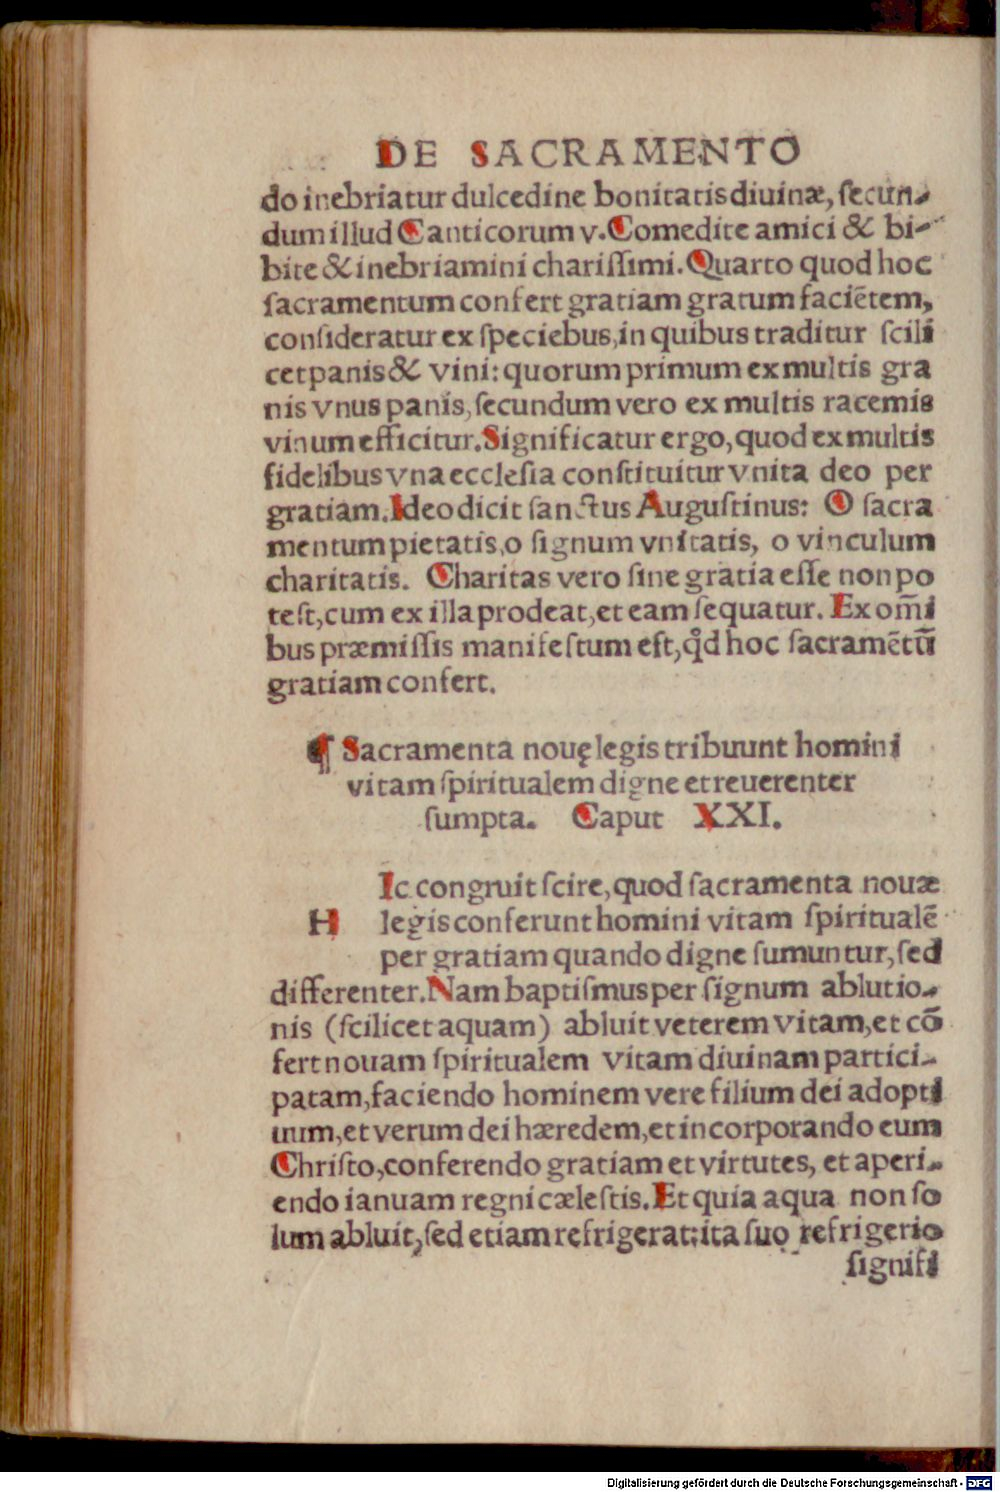 DE SACRAMENTO
do inebriatur dulcedine bonitatis diuinæ, ſecun-
dum illud Canticorum v. Comedite amici & bi-
bite & inebriamini chariſſimi. Quarto quod hoc
ſacramentum confert gratiam gratum faciẽtem,
conſideratur ex ſpeciebus, in quibus traditur ſcili
cet panis & vini: quorum primum ex multis gra
nis vnus panis, ſecundum vero ex multis racemis
vinum efficitur. Significatur ergo, quod ex multis
fidelibus vna eccleſia conſtituitur vnita deo per
gratiam. Ideo dicit ſanctus Auguſtinus: O ſacra
mentum pietatis, o ſignum vnitatis, o vinculum
charitatis. Charitas vero ſine gratia eſſe non po
teſt, cum ex illa prodeat, et eam ſequatur. Ex om̃i
bus præmiſſis manifeſtum eſt, qd̉ hoc ſacramẽtũ
gratiam confert.
¶ Sacramenta nouę legis tribuunt homini
vitam ſpiritualem digne et reuerenter
ſumpta. Caput XXI.
H Ic congruit ſcire, quod ſacramenta nouæ
legis conferunt homini vitam ſpiritualẽ
per gratiam quando digne ſumuntur, ſed
differenter. Nam baptiſmus per ſignum ablutio-
nis (ſcilicet aquam) abluit veterem vitam, et cõ
fert nouam ſpiritualem vitam diuinam partici-
patam, faciendo hominem vere filium dei adopti
uum, et verum dei hæredem, et incorporando eum
Chriſto, conferendo gratiam et virtutes, et aperi-
endo ianuam regni cæleſtis. Et quia aqua non ſo
lum abluit, ſed etiam refrigerat: ita ſuo refrigerio
ſignifi
Digitalisierung gefördert durch die Deutsche Forschungsgemeinschaft - DFG